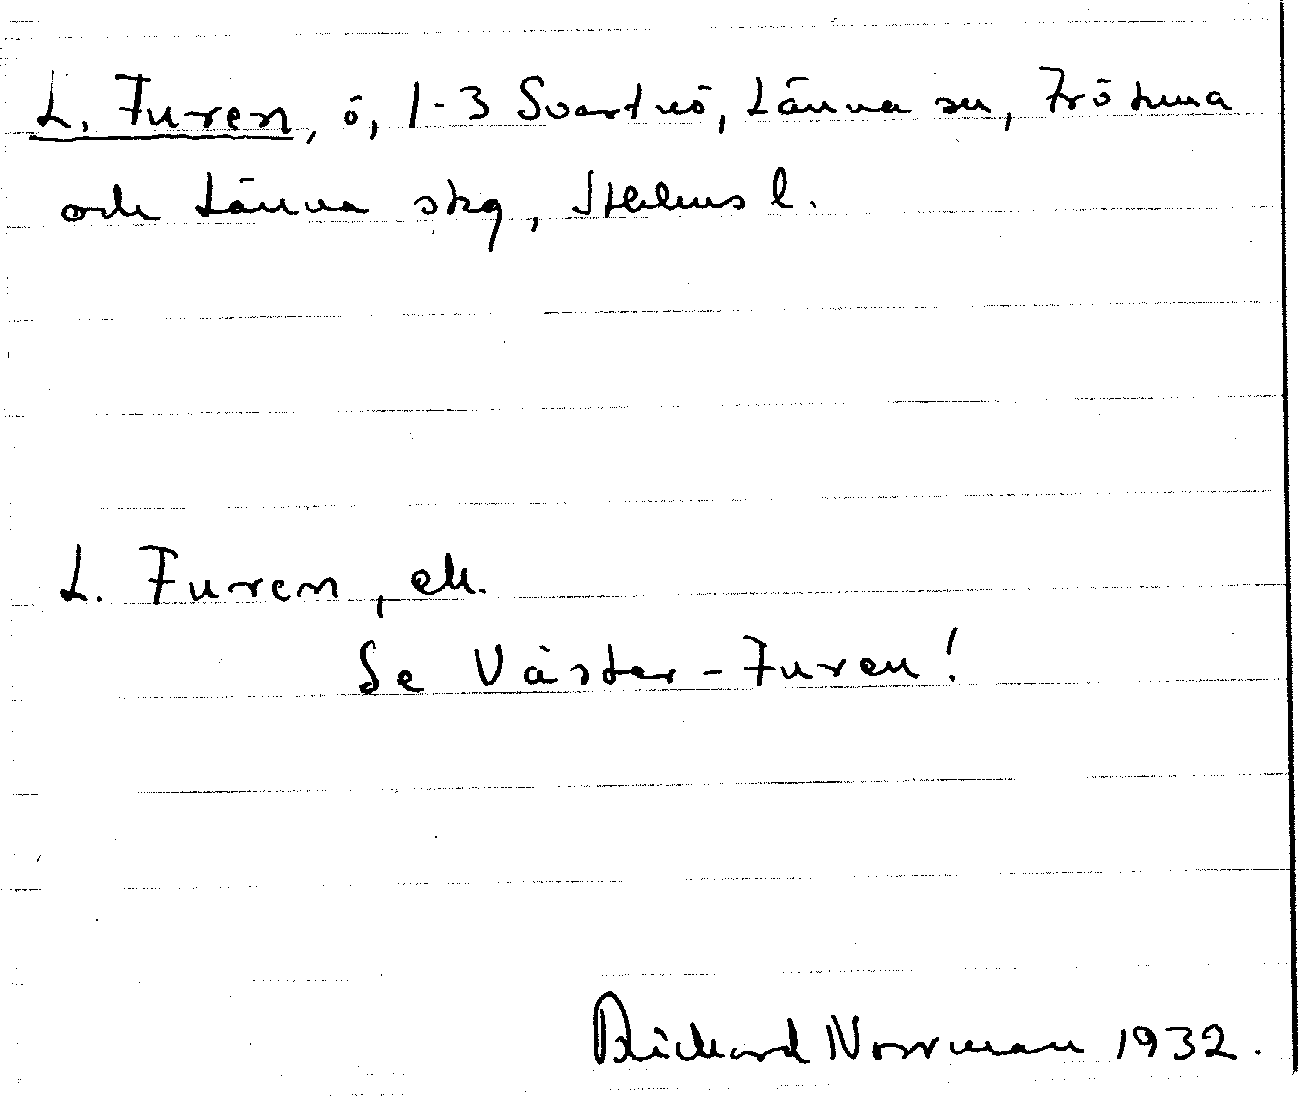 L. Furen, ö, 1-3 Svartnö, Länna sn, Frötuna
och Länna skg, Sthlms l.
L. Furen, ek.
Se Väster-Furen!
Rickard Norrman 1932.